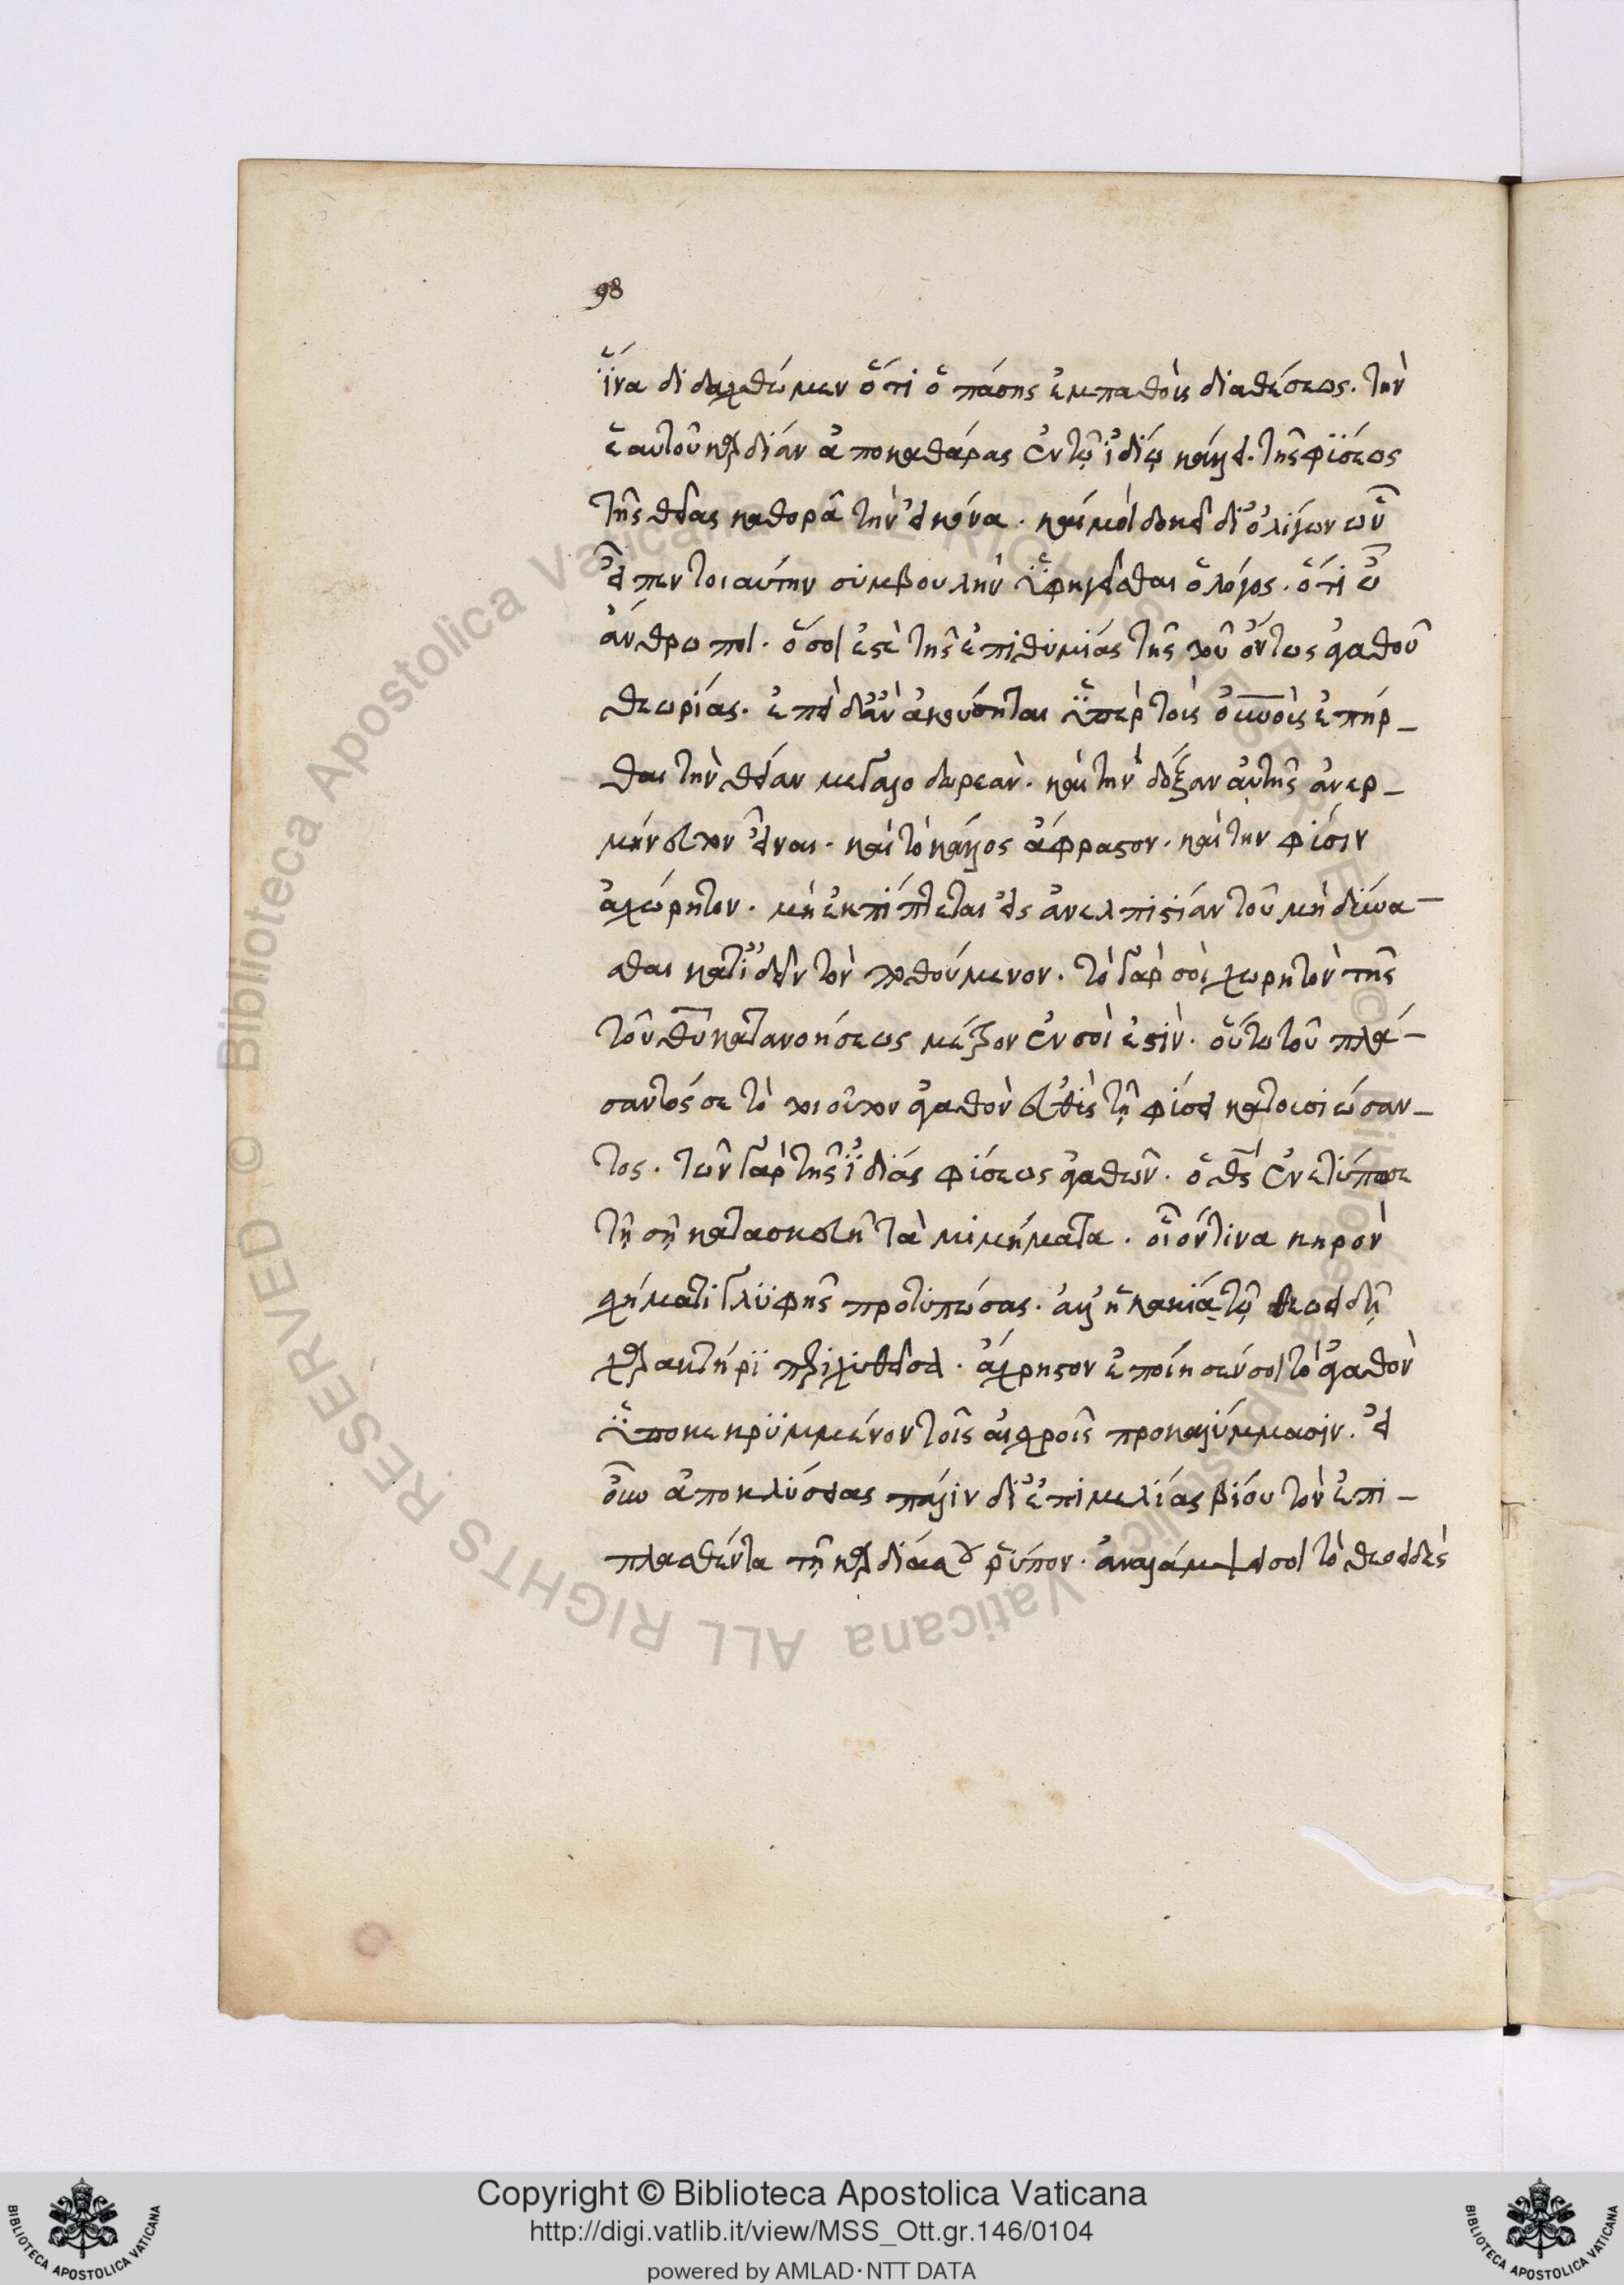 98
ἵνα διδαχθῶμεν ὅτι ὁ πάσης ἐμπαθοῦς διαθέσεως. τὴν
ἑαυτοῦ καρδίαν ἀποκαθάρας ἐν τῷ ἰδίῳ κάλλει. τῆς φύσεως
τῆς θείας καθορᾶ τὴν εἰκόνα. καί μοι δοκεῖ δι' ὀλίγων ὧν
εἶπεν τοιαύτην συμβουλὴν ὑφηγεῖσθαι ὁ λόγος. ὅτι ὦ
ἄνθρωποι. ὅσοι ἐστὲ τῆς ἐπιθυμίας τῆς τοῦ ὄντως ἀγαθοῦ
θεωρίας. ἐπειδὰν ἀκούσηται ὑπὲρ τοὺς οὐνοὺς ἐπήρ-
θαι τὴν θείαν μεγαλοδωρεάν. καὶ τὴν δόξαν αὐτῆς ἀνερ-
μήνευτον εἶναι. καὶ τὸ κάλλος ἄφραστον. καὶ τὴν φύσιν
ἀχώρητον. μὴ ἐκπίπτεται εἰς ἀνελπιστίαν τοῦ μὴ δύνα-
σθαι κατιδεῖν τὸν ποθούμενον. τὸ γάρ σοι χωρητὸν τῆς
τοῦ θυ κατανοήσεως μέτρον ἐν σοί ἐστιν. οὕτω τοῦ πλά-
σαντός σε τὸ τοιοῦτον ἀγαθὸν εὐθὺς τῇ φύσει κατουσιώσαν-
τος. τῶν γὰρ τῆς ἰδίας φύσεως ἀγαθῶν. ὁ θς ἐνετύπωσε
τῇ σῇ κατασκευῇ τὰ μιμήματα. οἷόν τινα κηρὸν
σχήματι γλυφῆς προτυπώσας. ἀλλ' ἡ κακία τῷ θεοειδῇ
χαρακτήρι περιχυθεῖσα. ἄχρηστον ἐποίησέν σοι τὸ ἀγαθὸν
ὑποκεκρυμμένον τοῖς αἰσχροῖς προκαλύμμασιν. εἰ
οὖν ἀποκλύσειας πάλιν δι' ἐπιμελίας βίου τὸν ἐπι-
πλασθέντα τῇ καρδίᾳ σου ῥύπον. ἀναλάμψει σοι τὸ θεοειδὲς
Copyright © Biblioteca Apostolica Vaticana
http://digi.vatlib.it/view/MSS_Ott.gr.146/0104
powered by AMLAD·NTT DATA